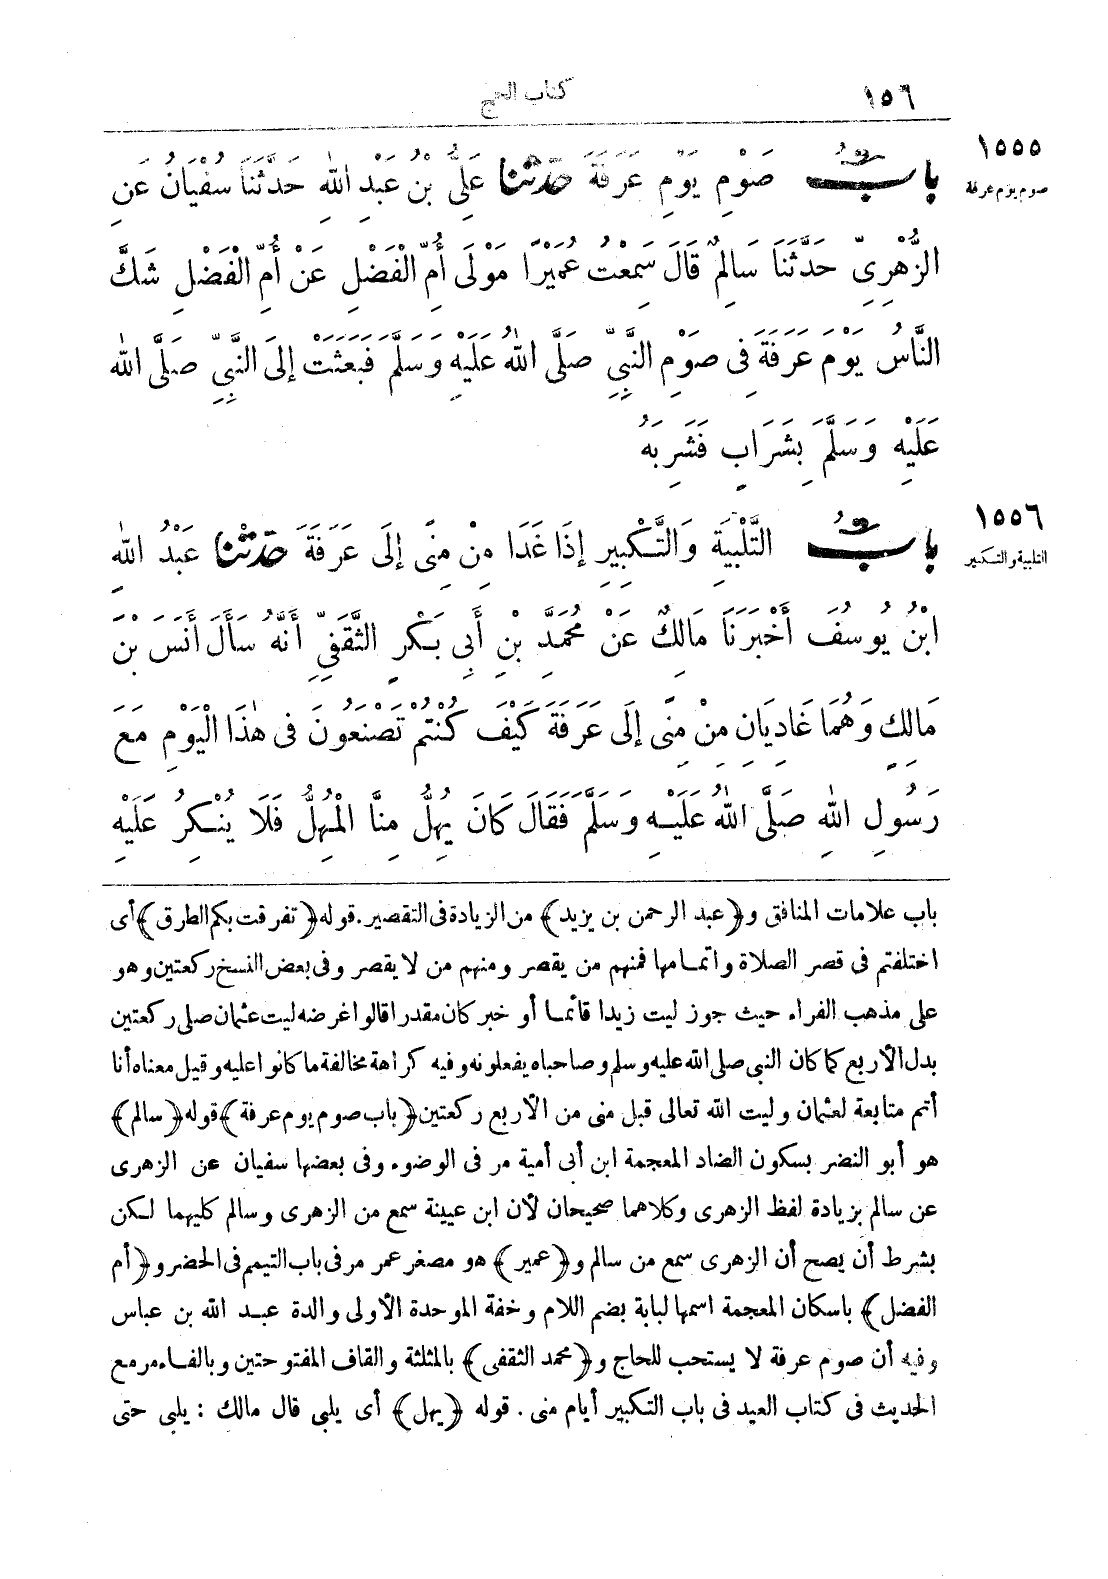 ١٥٦
كتاب الحج
١٥٥٥
صوم يوم عرفة
بابُ صَوْمِ يَوْمِ عَرَفَةَ حَدَّثَنَا عَلِىُّ بْنُ عَبْدِ اللهِ حَدَّثَنَا سُفْيَانُ عَنِ
الزُّهْرِىِّ حَدَّثَنَا سَالِمٌ قَالَ سَمِعْتُ عُمَيْرًا مَوْلَى أُمِّ الْفَضْلِ عَنْ أُمِّ الْفَضْلِ شَكَّ
النَّاسُ يَوْمَ عَرَفَةَ فِى صَوْمِ النَّبِىِّ صَلَّى اللهُ عَلَيْهِ وَسَلَّمَ فَبَعَثْتُ إِلَى النَّبِىِّ صَلَّى اللهُ
عَلَيْهِ وَسَلَّمَ بِشَرَابٍ فَشَرِبَهُ
١٥٥٦
التلبية والتكبير
بابُ التَّلْبِيَةِ وَالتَّكْبِيرِ إِذَا غَدَا مِنْ مِنًى إِلَى عَرَفَةَ حَدَّثَنَا عَبْدُ اللهِ
ابْنُ يُوسُفَ أَخْبَرَنَا مَالِكٌ عَنْ مُحَمَّدِ بْنِ أَبِى بَكْرٍ الثَّقَفِىِّ أَنَّهُ سَأَلَ أَنَسَ بْنَ
مَالِكٍ وَهُمَا غَادِيَانِ مِنْ مِنًى إِلَى عَرَفَةَ كَيْفَ كُنْتُمْ تَصْنَعُونَ فِى هٰذَا الْيَوْمِ مَعَ
رَسُولِ اللهِ صَلَّى اللهُ عَلَيْهِ وَسَلَّمَ فَقَالَ كَانَ يُهِلُّ مِنَّا الْمُهِلُّ فَلَا يُنْكِرُ عَلَيْهِ
باب علامات المنافق و﴿عبد الرحمن بن يزيد﴾ من الزيادة فى التقصير. قوله ﴿تفرقت بكم الطرق﴾ أى
اختلفتم فى قصر الصلاة واتمامها فمنهم من يقصر ومنهم من لا يقصر وفى بعض النسخ ركعتين وهو
على مذهب الفراء حيث جوز ليت زيدا قائما أو خبر كان مقدرا قالوا غرضه ليت عثمان صلى ركعتين
بدل الأربع كما كان النبى صلى الله عليه وسلم وصاحباه يفعلونه وفيه كراهة مخالفة ما كانوا عليه وقيل معناه أنا
أتم متابعة لعثمان وليت الله تعالى قبل منى من الأربع ركعتين ﴿باب صوم يوم عرفة﴾ قوله ﴿سالم﴾
هو أبو النضر بسكون الضاد المعجمة ابن أبى أمية مر فى الوضوء وفى بعضها سفيان عن الزهرى
عن سالم بزيادة لفظ الزهرى وكلاهما صحيحان لأن ابن عيينة سمع من الزهرى وسالم كليهما لكن
بشرط أن يصح أن الزهرى سمع من سالم و﴿عمير﴾ هو مصغر عمر مر فى باب التيمم فى الحضر و﴿أم
الفضل﴾ باسكان المعجمة اسمها لبابة بضم اللام وخفة الموحدة الأولى والدة عبد الله بن عباس
وفيه أن صوم عرفة لا يستحب للحاج و﴿محمد الثقفى﴾ بالمثلثة والقاف المفتوحتين وبالفاء مر مع
الحديث فى كتاب العيد فى باب التكبير أيام منى . قوله ﴿يهل﴾ أى يلبى قال مالك : يلبى حتى